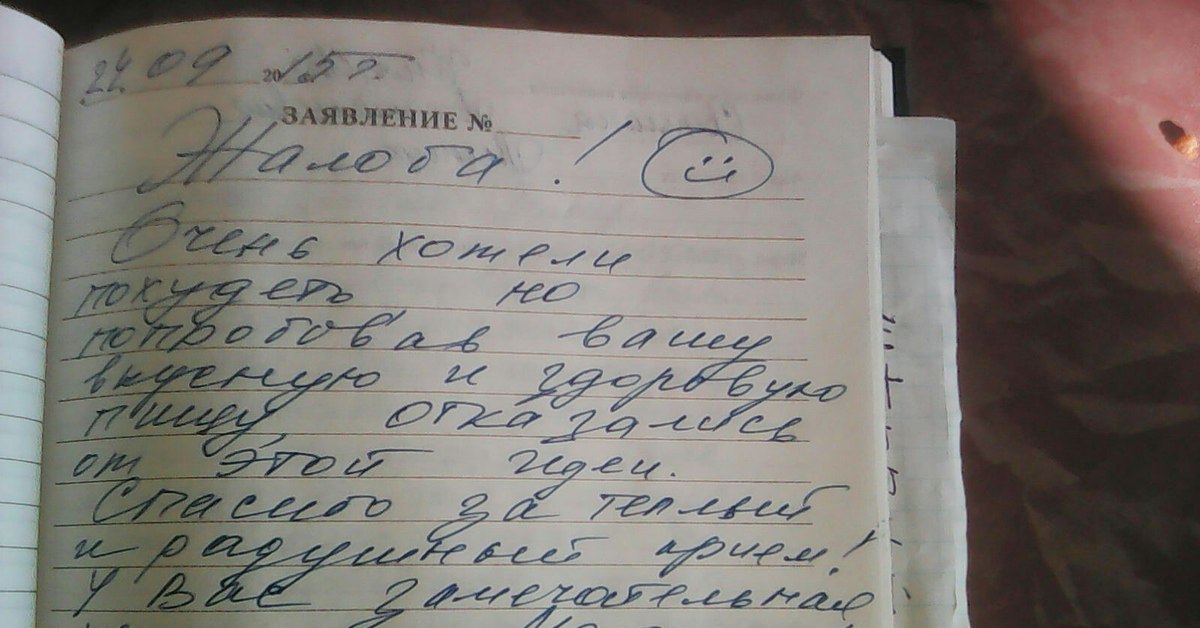 24 09 2015 г.
ЗАЯВЛЕНИЕ №
Жалоба!
Очень хотели
похудеть но
попробовав вашу
вкусную и здоровую
пищу, отказались
от этой идеи.
Спасибо за теплый
и радушный прием!
У Вас замечательная